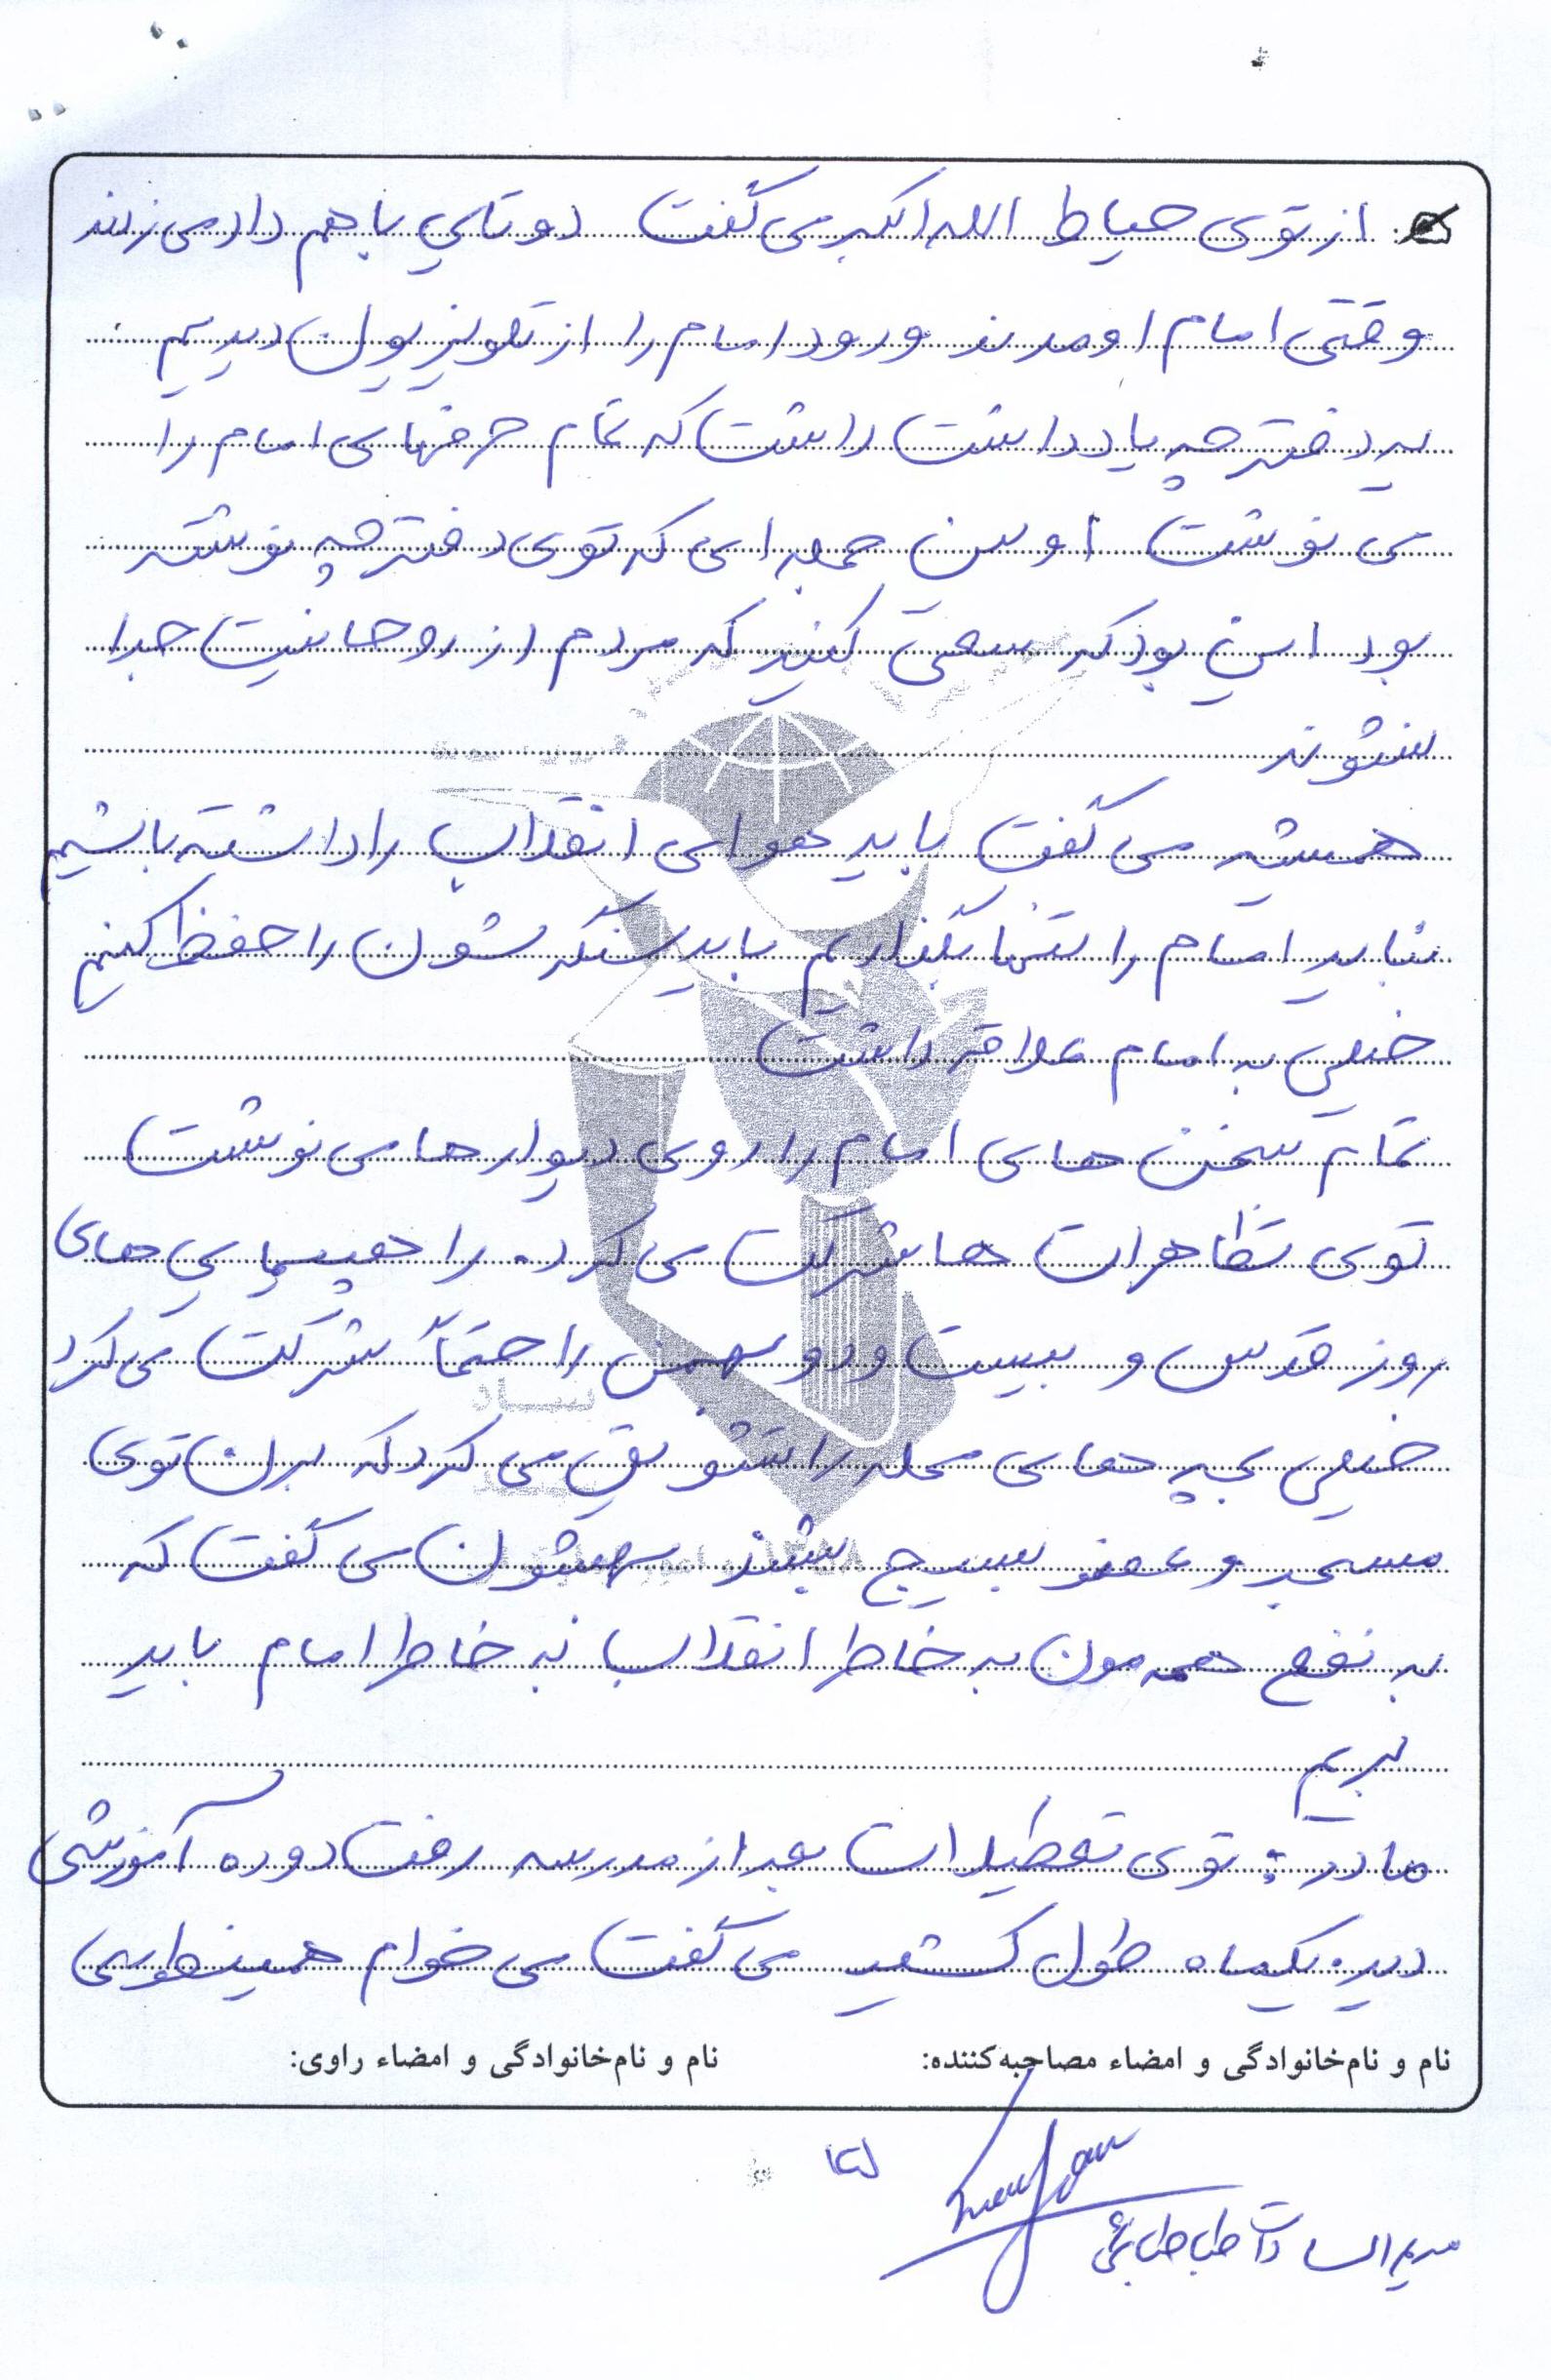 از توی حیاط الله اکبر می گفت دو تایی با هم داد می زدند
وقتی امام اومدند ورود امام را از تلویزیون دیدیم
یه دفترچه یادداشت داشت که تمام حرفهای امام را
می نوشت اولین جمله ای که توی دفترچه نوشته
بود این بود که سعی کنید که مردم از روحانیت جدا
نشوند
همیشه می گفت باید هوای انقلاب را داشته باشیم
نباید امام را تنها بگذاریم باید سنگرشون را حفظ کنیم
خیلی به امام علاقه داشت
تمام سخن های امام را روی دیوارها می نوشت
توی تظاهرات ها شرکت می کرد. راهپیمایی های
روز قدس و بیست و دو بهمن را حتماً شرکت می کرد
خیلی بچه های محله را تشویق می کرد که برن توی
مسجد و عضو بسیج بشند بهشون می گفت که
به نفع همه مون به خاطر انقلاب نه خاطر امام باید
بریم
مادر: توی تعطیلات بعد از مدرسه رفت دوره آموزشی
دید. یکماه طول کشید می گفت می خوام همینطوری
نام و نام‌خانوادگی و امضاء مصاحبه‌کننده: نام و نام‌خانوادگی و امضاء راوی:
مریم السادات طباطبائی